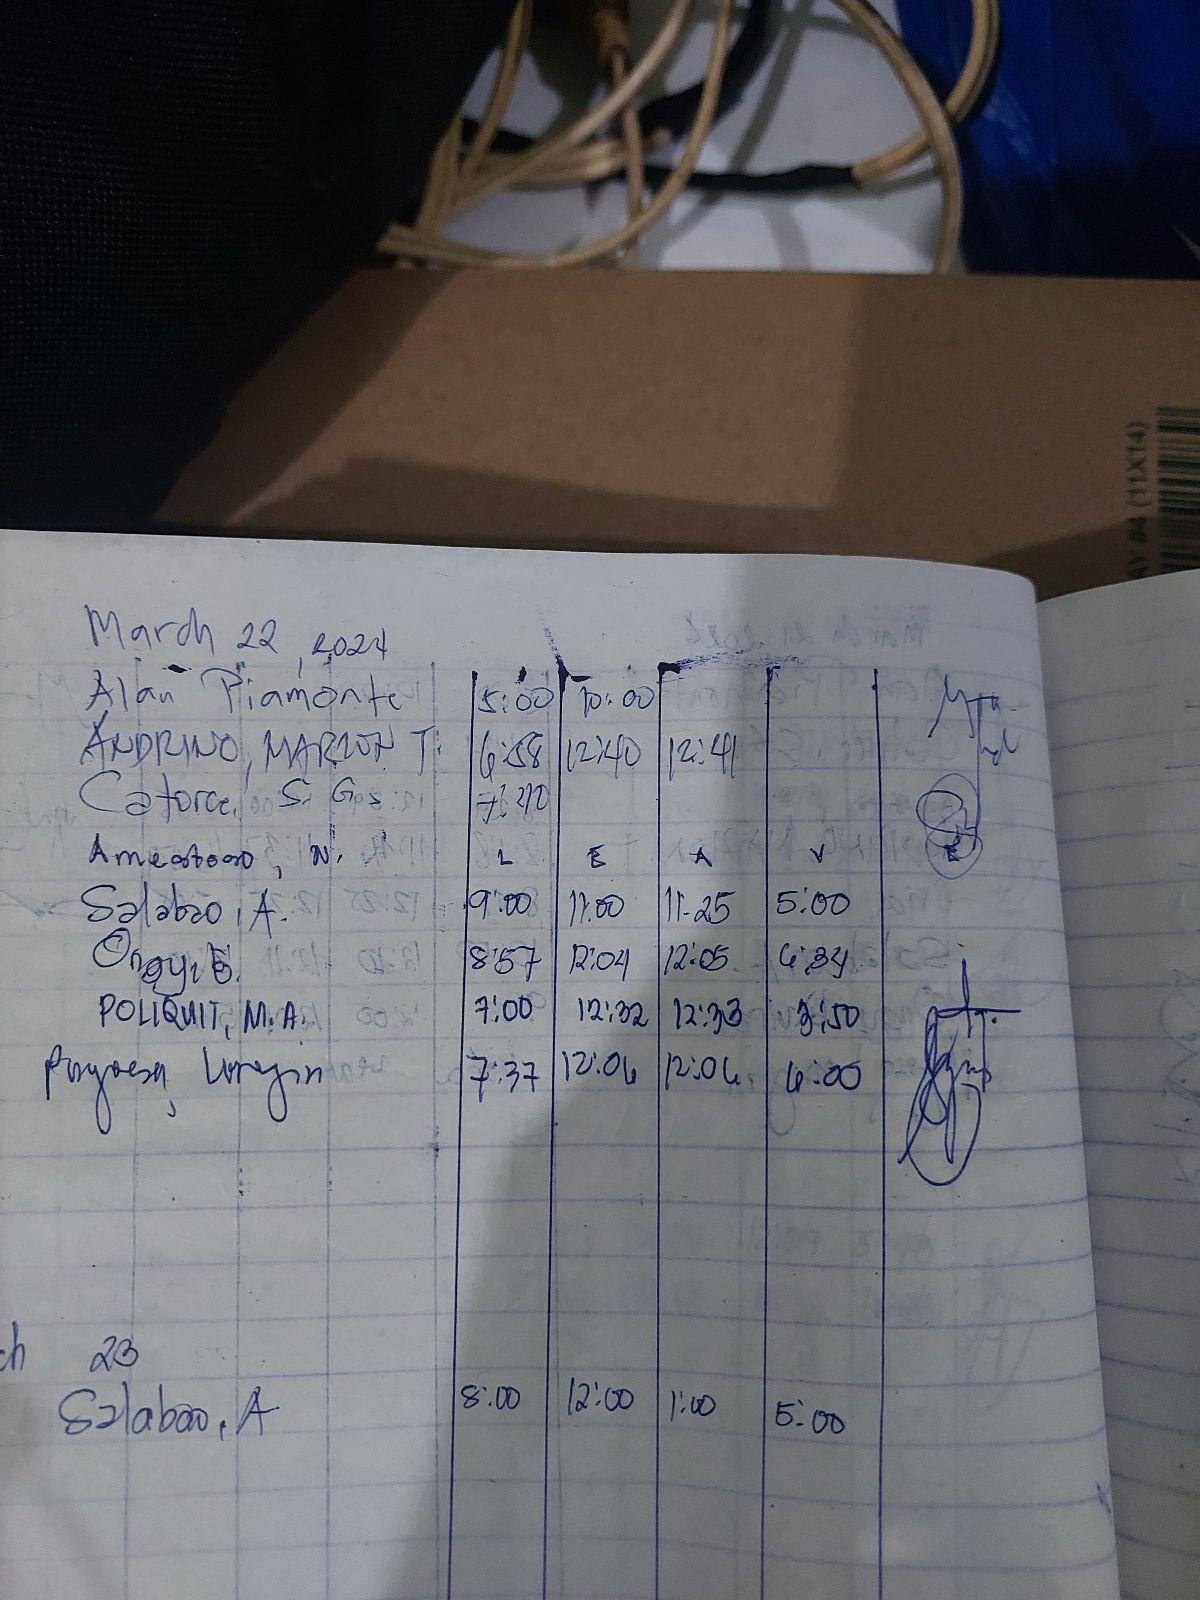 AY #4 (11X14)
March 22, 2024
Alan Piamonte 5:00 10:00
ANDRINO, MARLON T. 6:58 12:40 12:41
Catorce, S. G.
N. L E A V E
Salabao, A. 9:00 11:00 11:25 5:00
8:57 12:04 12:05 6:34
POLIQUIT, M.A. 7:00 12:32 12:33 3:50
7:37 12:06 12:06 6:00
ch 23
Salabao, A 8:00 12:00 1:00 5:00